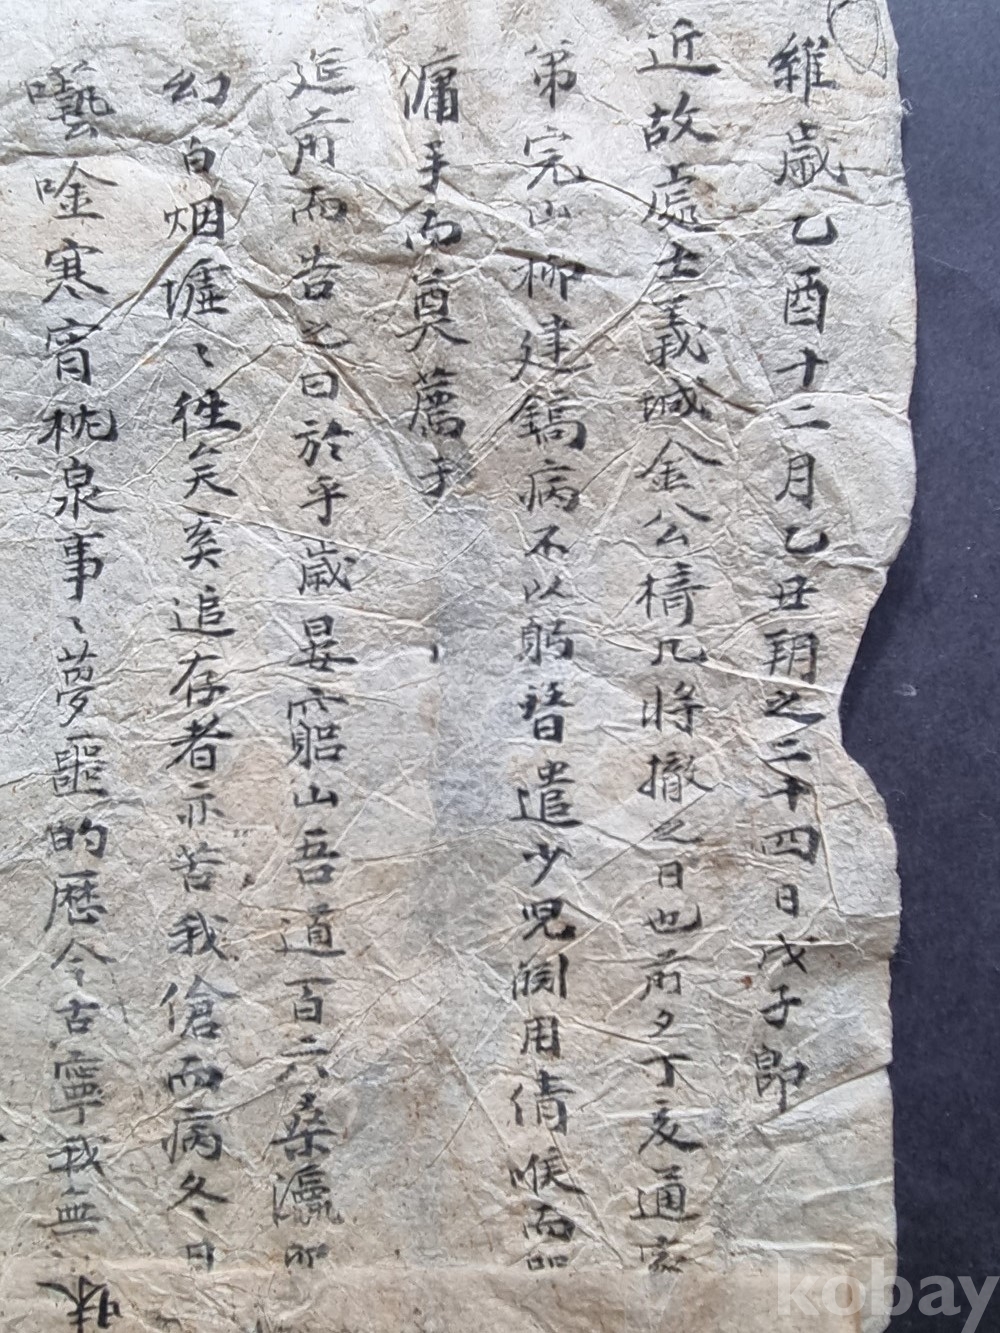 維歲乙酉十二月乙丑朔之二十四日戊子卽
近故處士義城金公樍几將撤之日也前夕丁亥通家
弟完山柳建鎬病不以躬替遣少兒淵用倩喉而
傭手而奠薦于
筵前而告之曰於乎歲晏而韶山吾道百六桑瀛
幻白烟墟〻徃矣奚追存者亦苦我傖而病冬日
囈唫寒宵枕泉事〻夢噩的歷今古寧我無
kobay